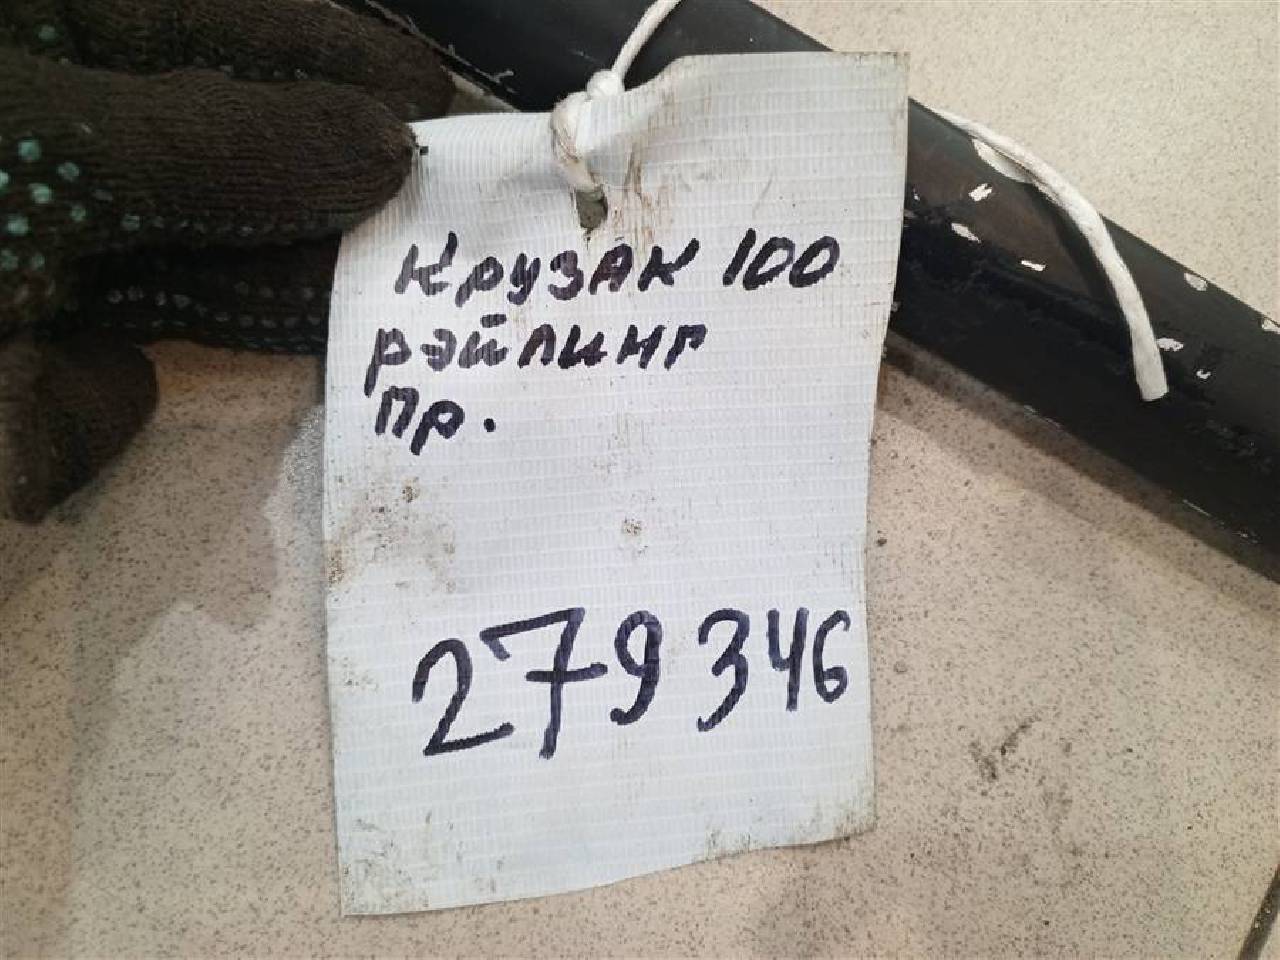 Крузак 100
рэйлинг
пр.
279346